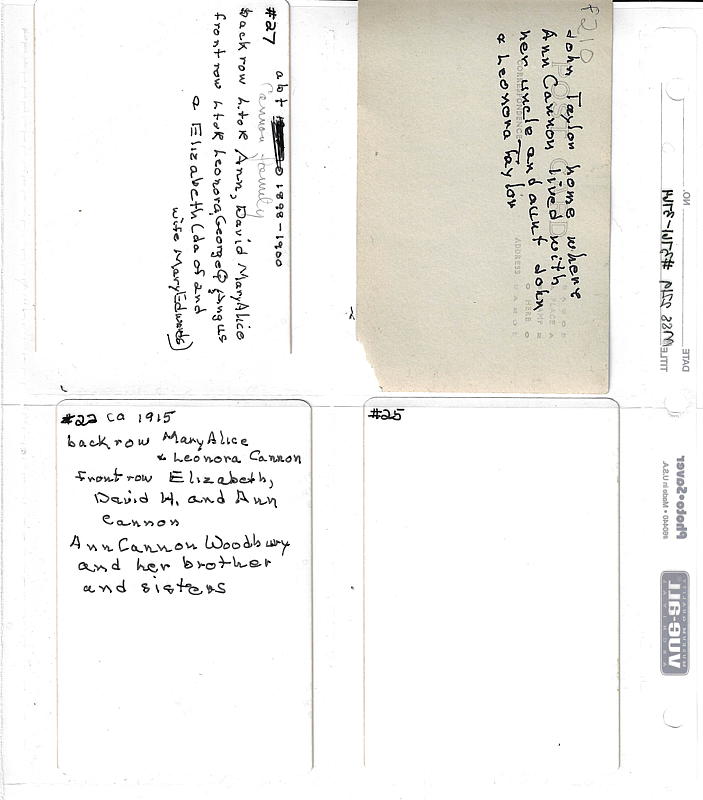 #27 abt 1898-1900
Cannon family
back row L to R Ann, David Mary Alice
front row L to R Leonora, George Q, Angus
& Elizabeth (da of and
wife Mary Edwards)
P210
John Taylor home where
Ann Cannon lived with
her uncle and aunt John
& Leonora Taylor
POST CARD
CORRESPONDENCE
ADDRESS
PLACE
HERE
#22 ca 1915
back row Mary Alice
& Leonora Cannon
front row Elizabeth,
David H. and Ann
Cannon
Ann Cannon Woodbury
and her brother
and sisters
#25
NO.
DATE
TITLE
MSS P24
photo•saver
Made in U.S.A.
VUE-ALL